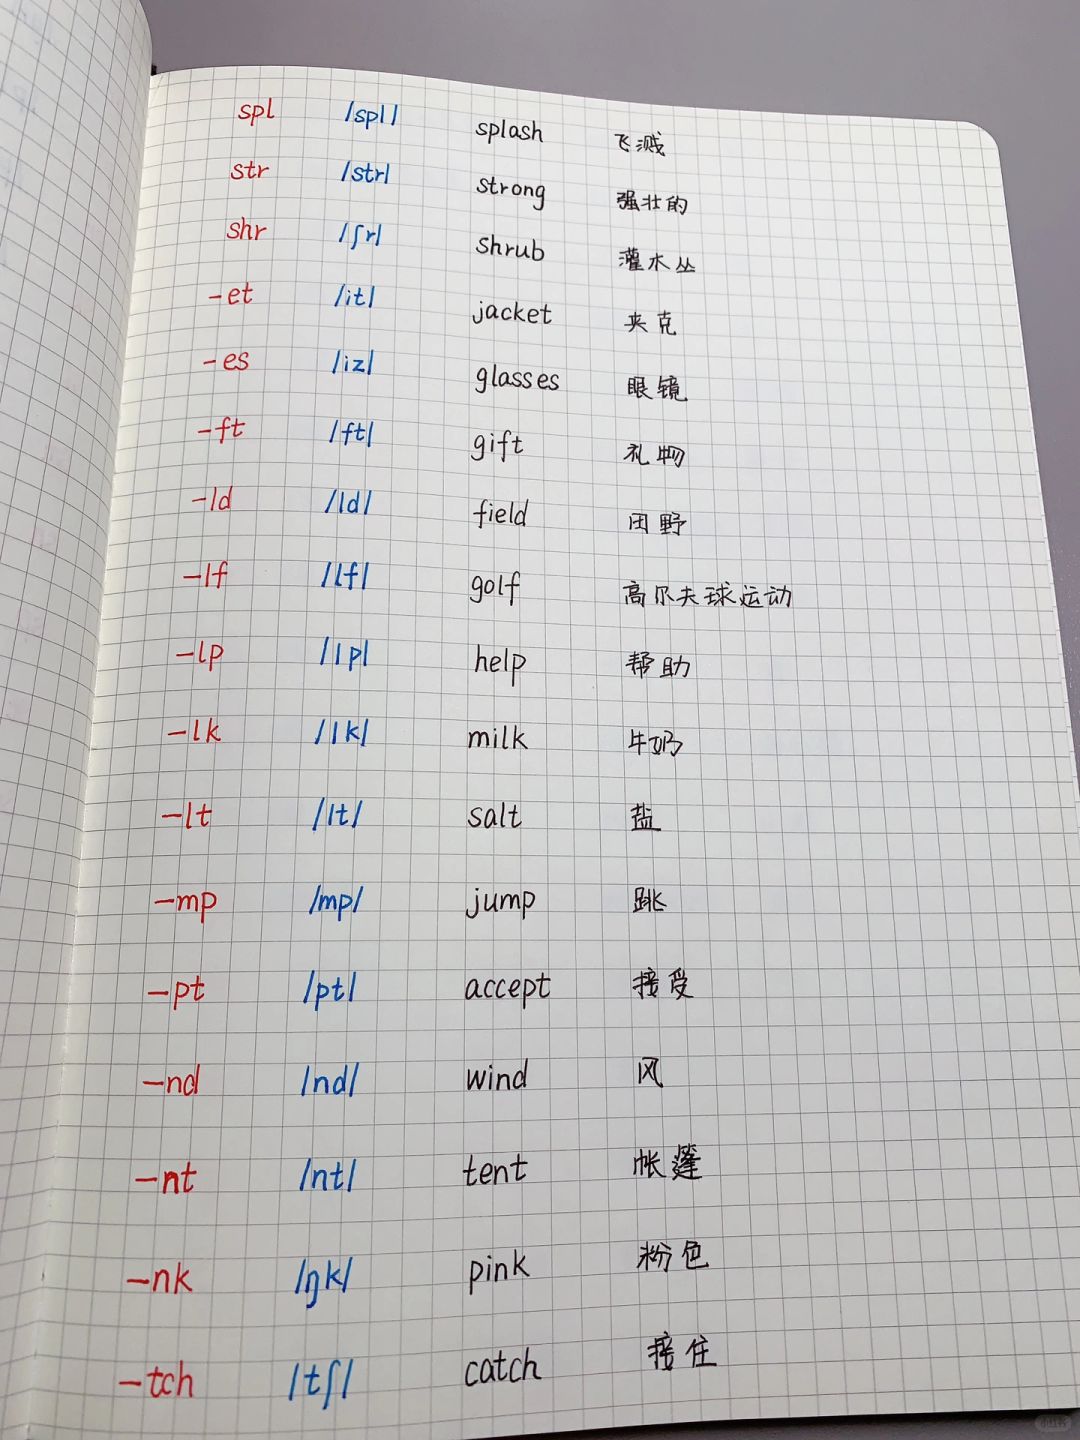 spl /spl/ splash 飞溅
str /str/ strong 强壮的
shr /ʃr/ shrub 灌水丛
-et /it/ jacket 夹克
-es /iz/ glasses 眼镜
-ft /ft/ gift 礼物
-ld /ld/ field 田野
-lf /lf/ golf 高尔夫球运动
-lp /lp/ help 帮助
-lk /lk/ milk 牛奶
-lt /lt/ salt 盐
-mp /mp/ jump 跳
-pt /pt/ accept 接受
-nd /nd/ wind 风
-nt /nt/ tent 帐篷
-nk /ŋk/ pink 粉色
-tch /tʃ/ catch 接住
小红书